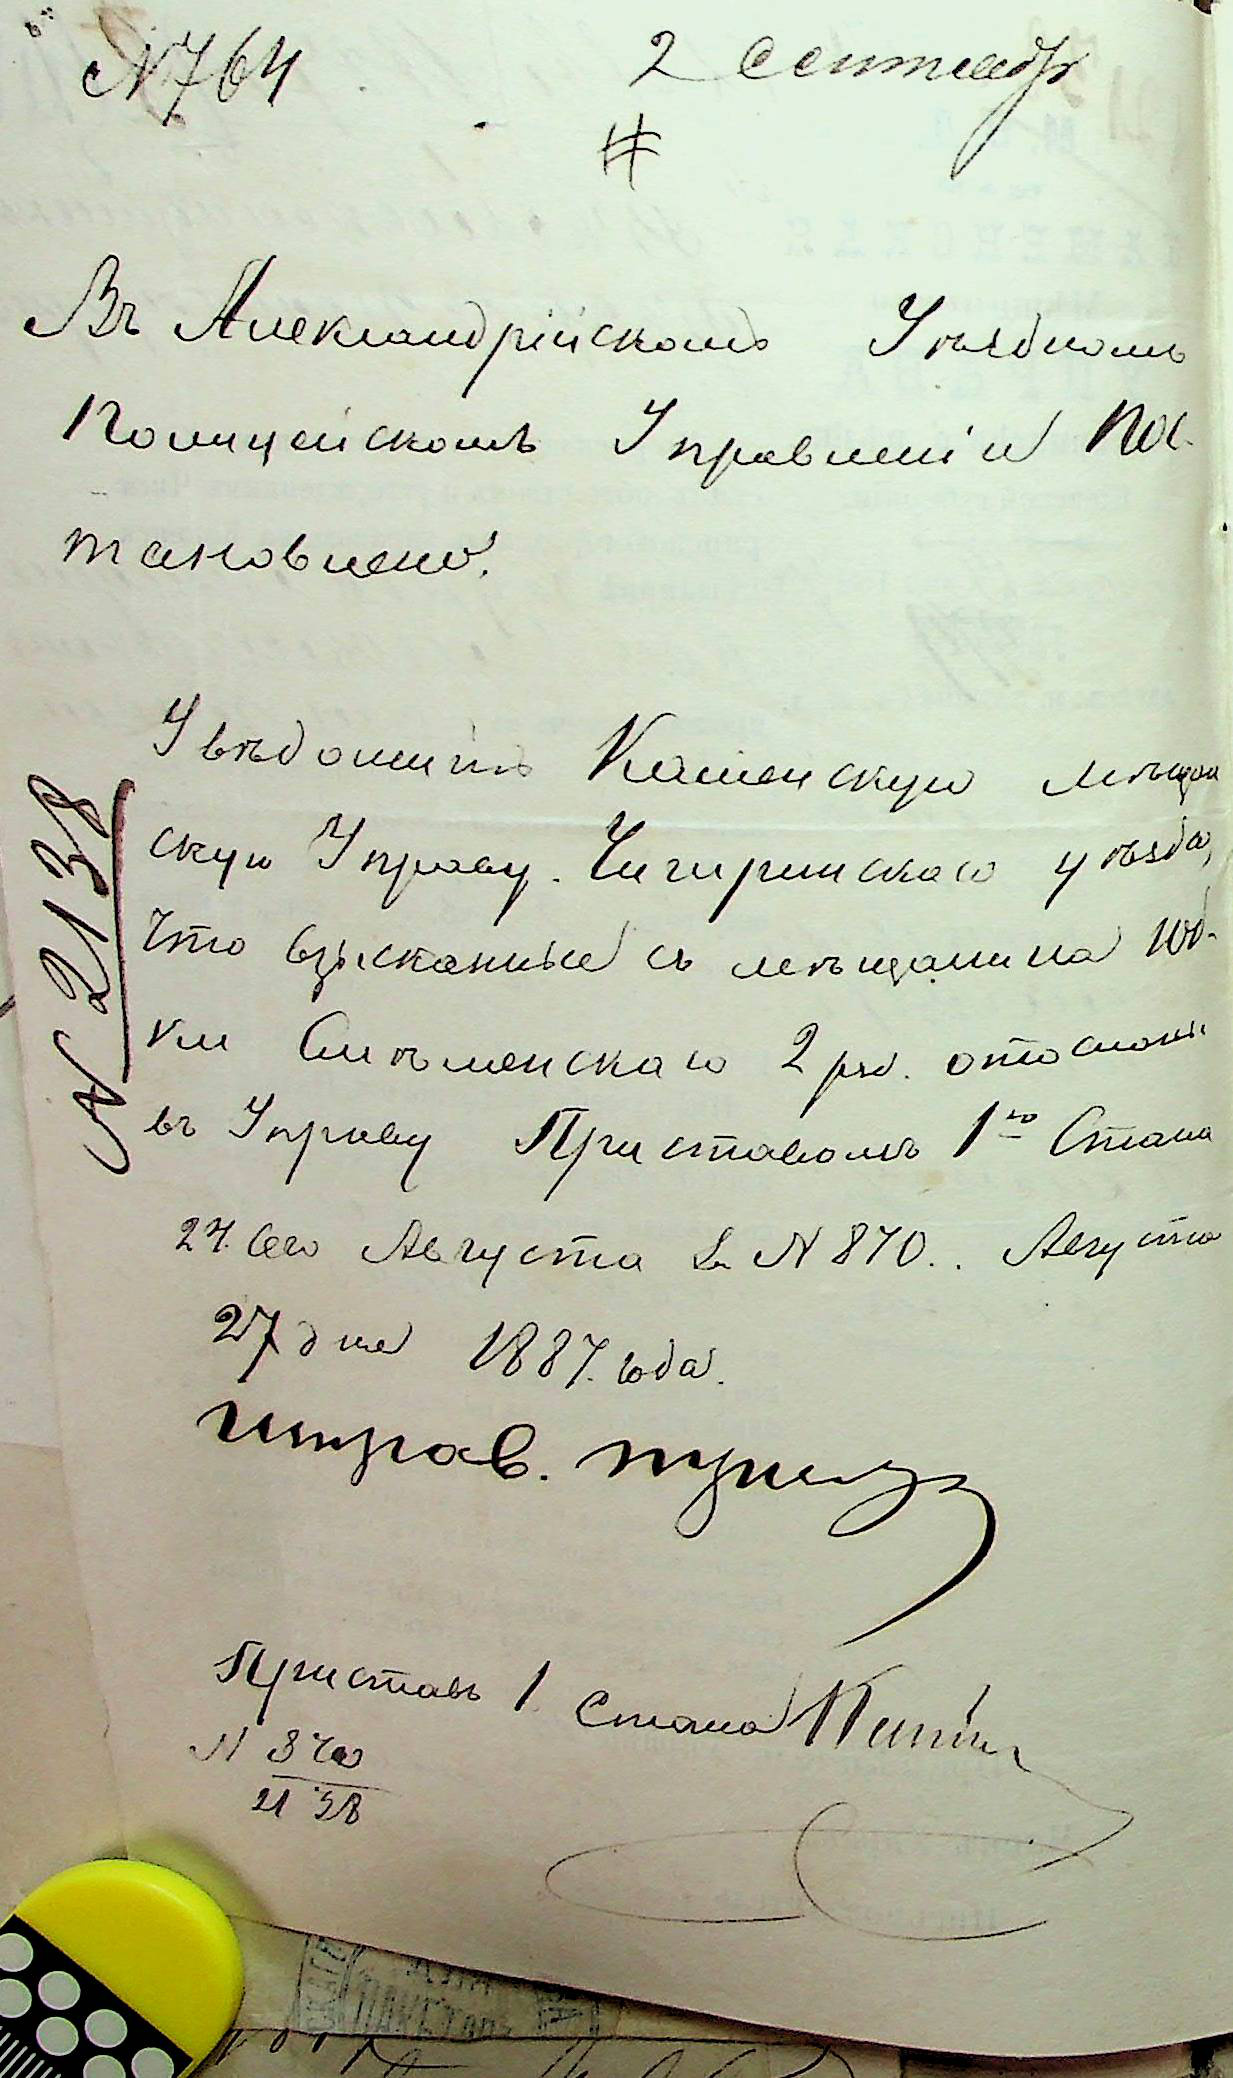 N 764 2 Сентября
Въ Александрійскомъ Уѣздномъ
Полицейскомъ Управленіи Пос-
тановлено:
Увѣдомить Каменскую мѣщан
скую Управу Чигиринскаго уѣзда,
что взысканные съ мѣщанина
2 руб. отосланы
въ Управу Приставомъ 1го Стана
27 сего Августа за N 870. Августа
27 дня 1887 года.
N 2138
Исправ.
Приставъ 1 Стана
N 870
2138